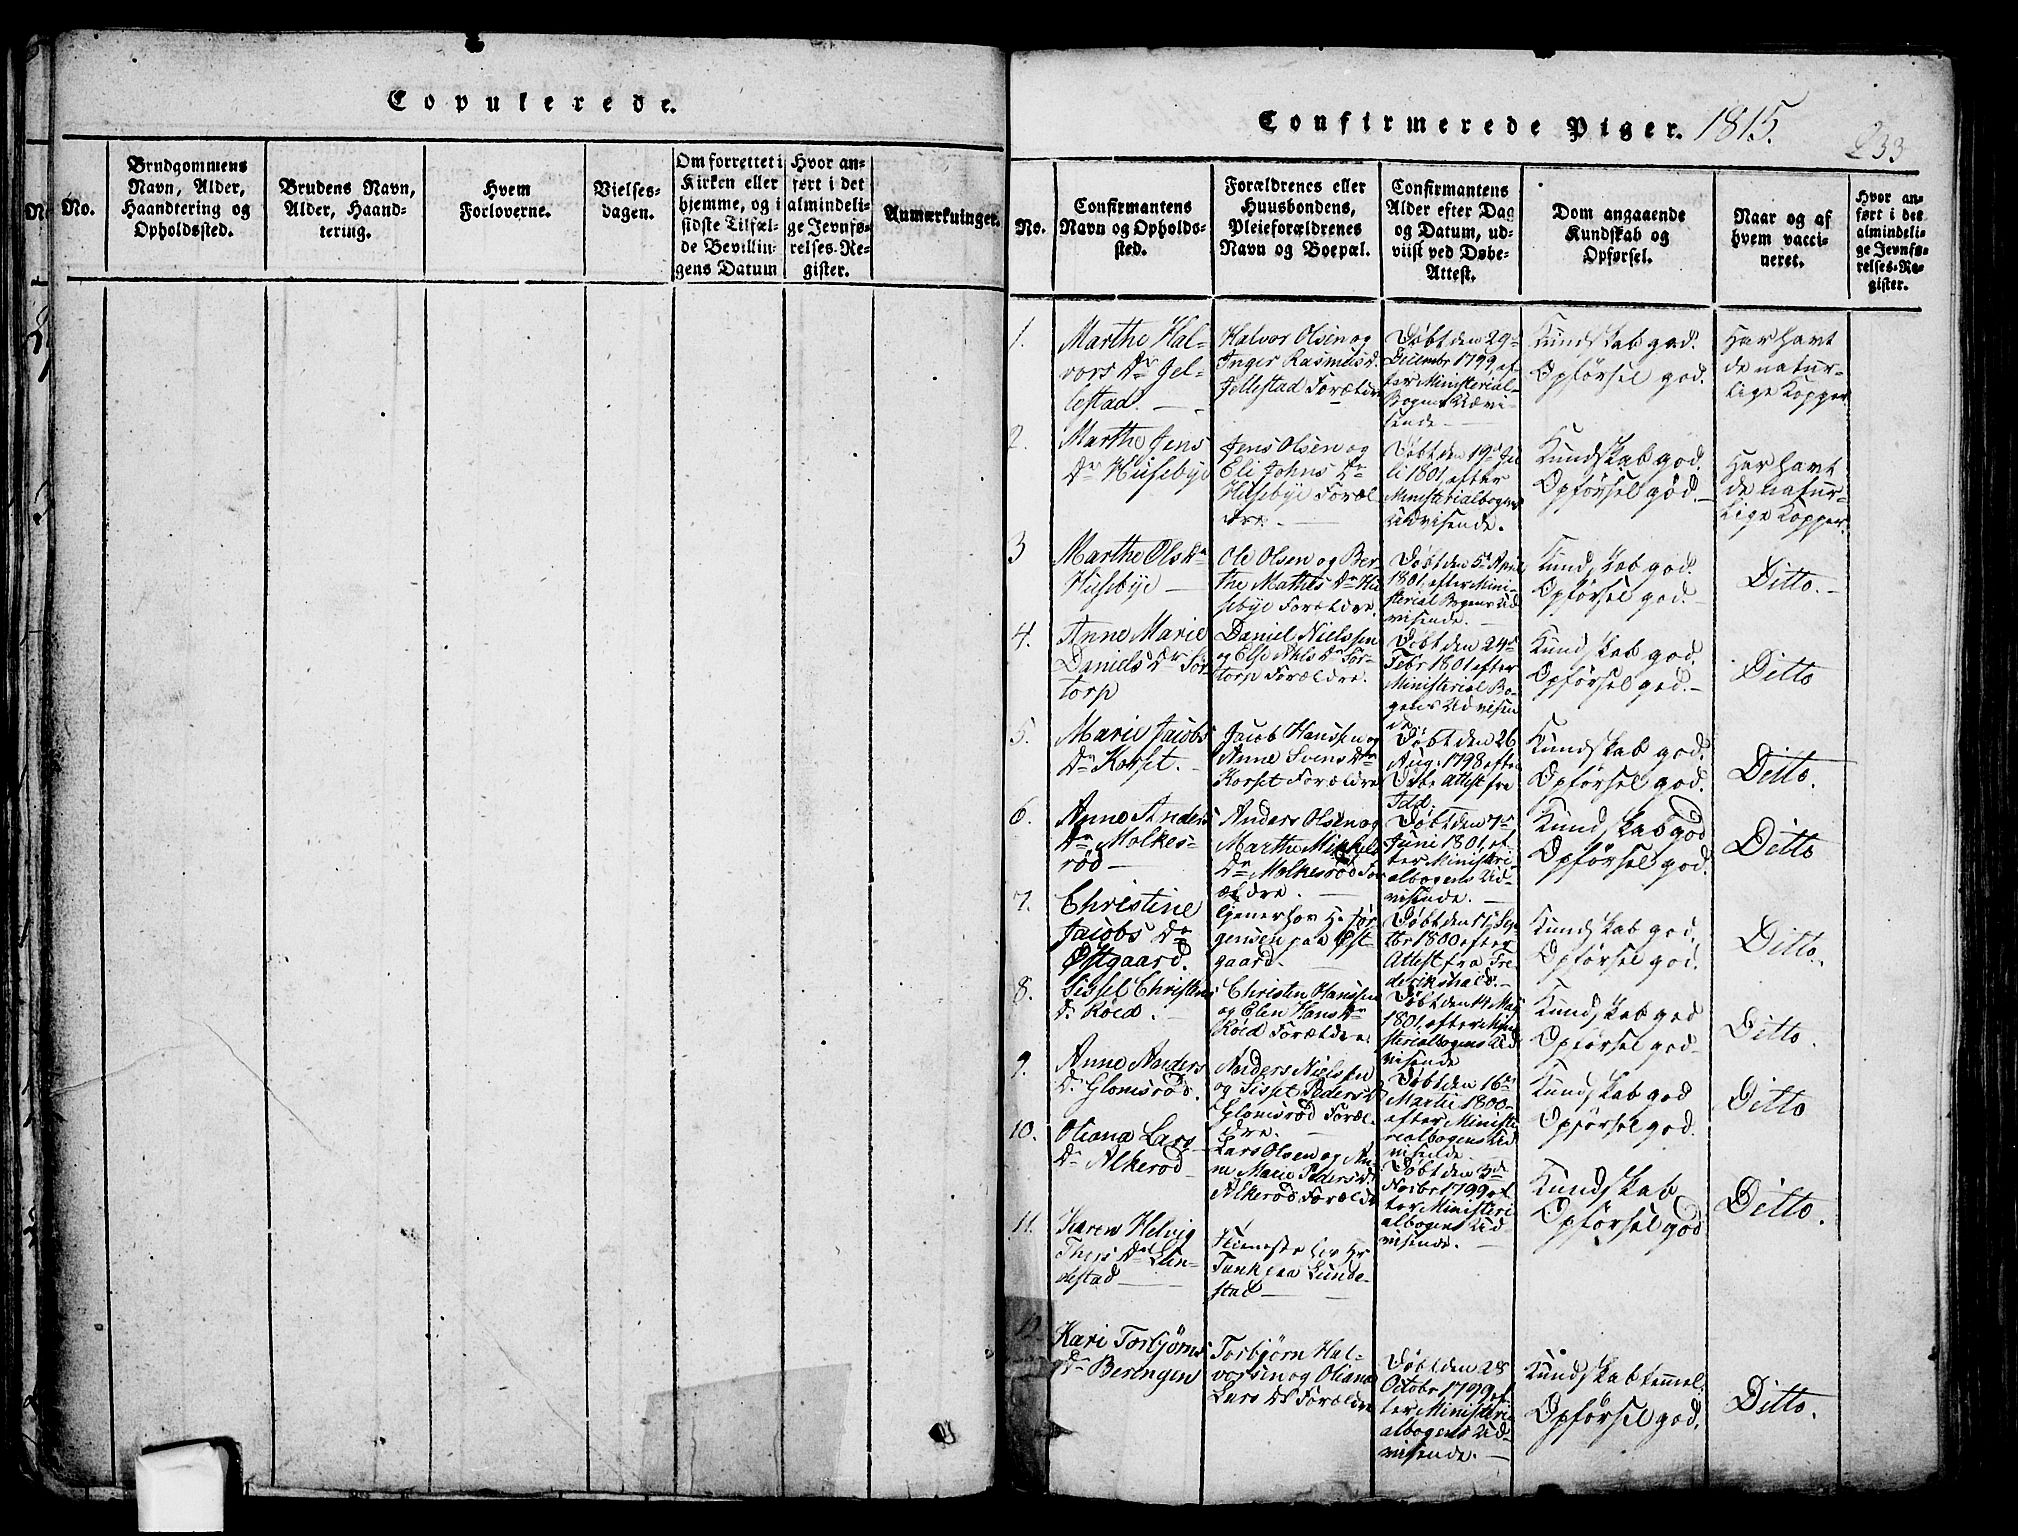 Copulerede.
No.
Brudgommens
Navn, Alder,
Haandtering og
Opholdssted.
Brudens Navn,
Alder, Haand-
tering.
Hvem
Forloverne.
Vielses-
dagen.
Om forrettet i
Kirken eller
hjemme, og i
sidste Tilfæl-
de Bevillin-
gens Datum
Hvor an-
ført i det
almindeli-
ge Jevnfø-
relses-Re-
gister.
Anmærkninger.
Confirmerede Piger. 1815.
233
No.
Confirmantens
Navn og Opholds-
sted.
Forældrenes eller
Huusbondens,
Pleieforældrenes
Navn og Boepæl.
Confirmantens
Alder efter Dag
og Datum, ud-
viist ved Døbe-
Attest.
Dom angaaende
Kundskab og
Opførsel.
Naar og af
hvem vacci-
neret.
Hvor an-
ført i det
almindeli-
ge Jevnfø-
relses-Re-
gister.
1.
Marthe Hal-
vors Dr Jel-
lestad.
Halvor Olsen og
Inger Rasmus d.
Jellestad Forældre
Døbt den 29de
Decembr 1799, ef-
ter Ministerial-
Bogens Udvi-
sende
Kundskab god.
Opførsel god.
Har havt
de natur-
lige Kopper
2.
Marthe Jens
Dr Husebye
Jens Olsen og
Eli Johns Dr
Husebye Foræl-
dre.
Døbt den 19de Ju-
li 1801, efter
Ministerialbogens
Udvisende.
Kundskab god.
Opførsel god.
Har havt
de natur-
lige Kopper.
3
Marthe Ols Dr
Husebye
Ole Olsen og Ber-
the Mathis Dr Hu-
sebye Forældre.
Døbt den 5te April
1801, efter Mini-
sterial Bogens Ud
visende.
Kundskab god.
Opførsel god.
Ditto.
4.
Anne Marie
Daniels Dr Tor-
torp
Daniel Nielssen
og Else Nhls Dr Tor-
torp Forældre.
Døbt den 24de
Febr 1801 efter
Ministerial Bo-
gens Udvisen
de.
Kundskab god.
Opførsel god.
Ditto
5.
Marie Jacobs
Dr Korset.
Jacob Hanssen og
Anne Svens Dr
Korset Forældre
Døbt den 26
Aug. 1798, efter
Døbe Attest fra
Idd.
Kundskab god.
Opførsel god.
Ditto.
6.
Anne Anders
Dr Molkes-
rød
Anders Olsen og
Marthe Mikkels
Dr Molkesrød For
ældre.
Døbt den 7de
Juni 1801, ef-
ter Ministeri-
albogens Ud-
visende.
Kundskab god
Opførsel god.
Ditto
7.
Christine
Jacobs Dr
Østgaard.
tjener hos Hr Jør-
gensen paa Øst-
gaard.
Døbt den 17de Sep
tbr 1800 efter
Attest fra Fre-
derikshald.
Kundskab god.
Opførsel god.
Ditto.
8.
Sissel Christens
Dr Røed.
Christen Hanssen
og Elen Hans Dr
Røed Forældre.
Døbt den 14 May
1801, efter Mini-
sterialbogens Ud
visende
Kundskab god
Opførsel god
Ditto.
9.
Anne Anders
Dr Glomsrød.
Anders Nielssen
og Sissel Peders d
Glomsrød Foræl-
dre.
Døbt den 16de
Martii 1800
efter Ministe
rialbogens Ud
visende
Kundskab god
Opførsel god.
Ditto
10.
Oliana Lars
Dr Alkerød
Lars Olsen og An-
ne Marie Peders d.
Alkerød Forældre
Døbt den 3de
Novbr 1799 ef
ter Ministeri
albogens Ud
visende.
Kundskab
Opførsel god
Ditto.
11.
Karen Helvig
Thers Dr Lun-
destad
Tieneste hos Hr
Tank paa Lunde-
stad
12.
Kari Torbjørns
Dr Berengen
Torbjørn Hal-
vorsen og Oliana
Lars Dr Forældre
Døbt den 28
Octobr 1799 ef
ter Ministeri
albogens Ud-
visende.
Kundskab temmel.
Opførsel god.
Ditto.